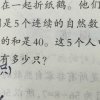 在一起折纸鹤。他们
是5个连续的自然数
的和是40。这5个人
有多少只?